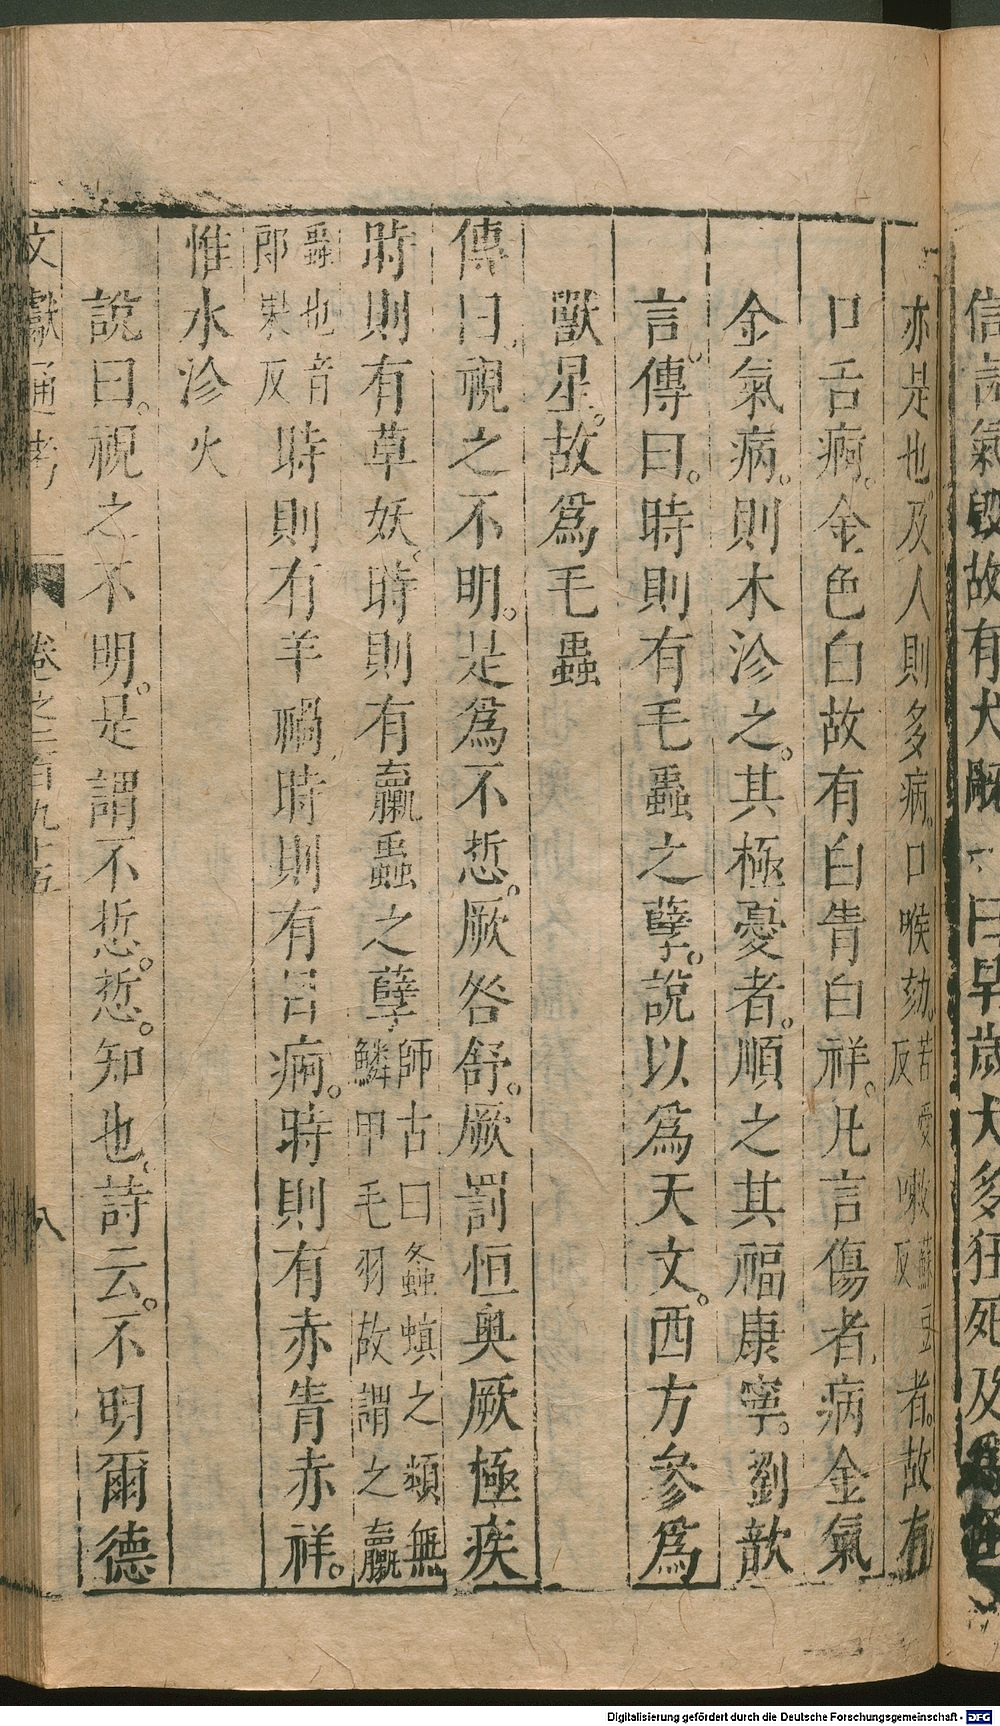 信言氣毀故有犬旤一曰旱歲犬多狂死及爲怪
亦是也及人則多病口喉劾苦愛反嗽蘇豆反者故有
口舌痾金色白故有白眚白祥凡言傷者病金氣
金氣病則木沴之其極憂者順之其福康寧劉歆
言傳曰時則有毛蟲之孽說以爲天文西方參爲
獸星故爲毛蟲
傳曰視之不明是爲不悊厥咎舒厥罰恒奧厥極疾
時則有草妖時則有蠃蟲之孽師古曰螽螟之類無鱗甲毛羽故謂之蠃
蟲也音郎果反時則有羊禍時則有目痾時則有赤眚赤祥
惟水沴火
說曰視之不明是謂不悊悊知也詩云不明爾德
文獻通考 卷之二百九十五 八
Digitalisierung gefördert durch die Deutsche Forschungsgemeinschaft - DFG